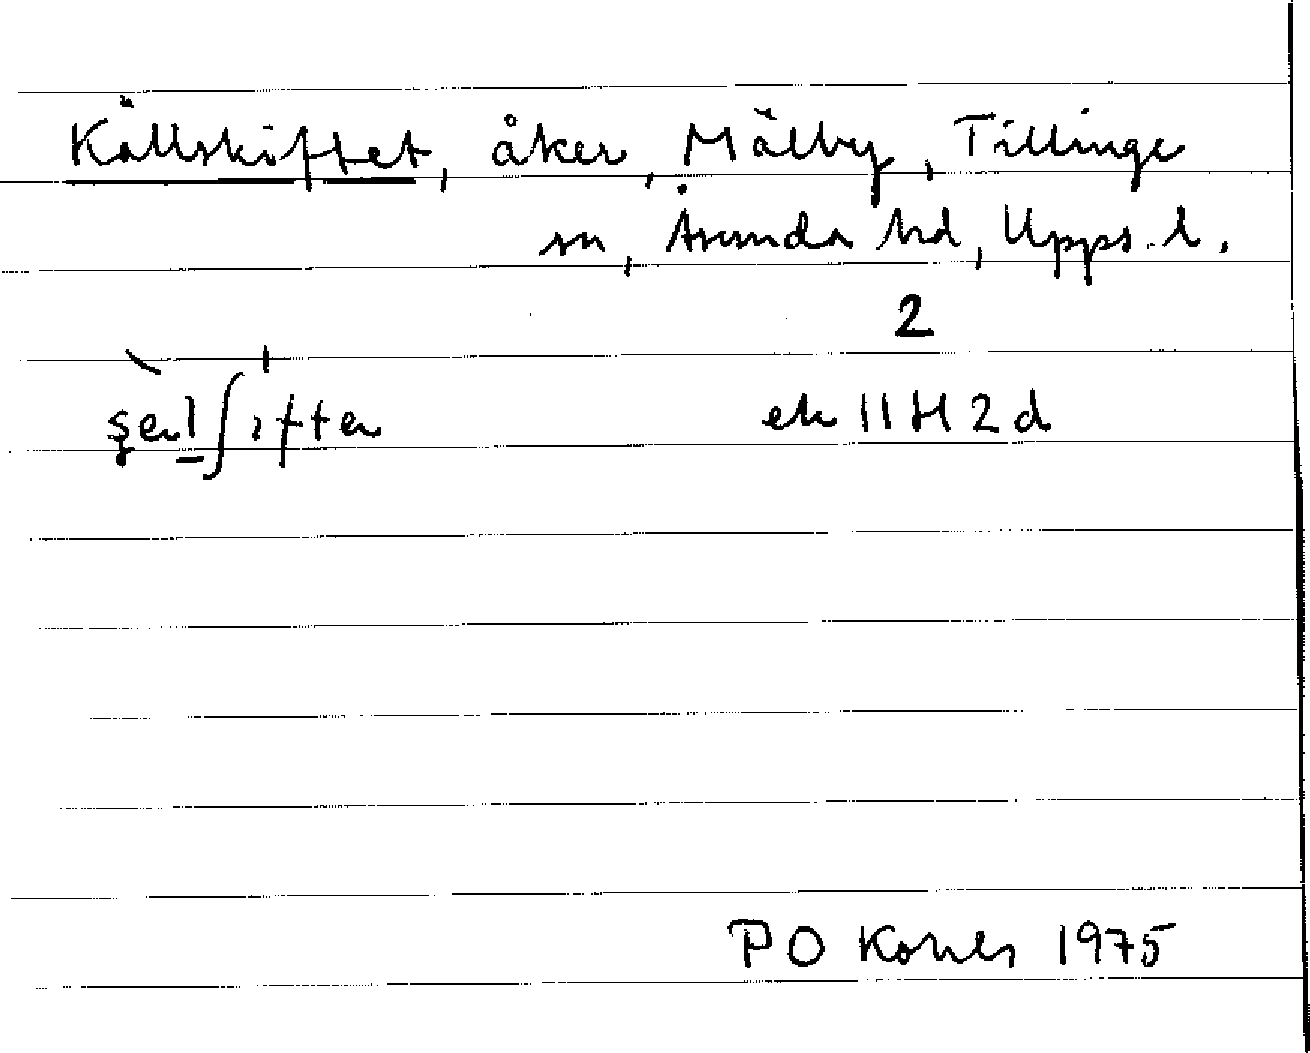 Källskiftet, åker, Mälby, Tillinge
sn, Åsunda hd, Upps. l.
2
şel̲ʃıften ek 11 H 2 d
P O 1975